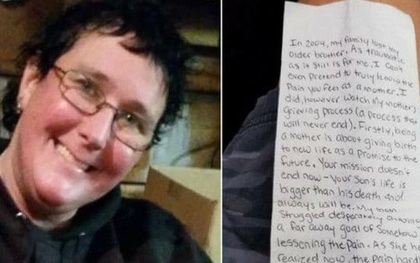 In 2004, my family lost my
older brother. As traumatic
as it still is for me, I can't
even pretend to truly know the
Pain you feel as a mother. I
did, however watch my mother's
grieving process (a process that
will never end). Firstly, being
a mother is about giving birth
to new life as a Promise to the
future. Your mission doesn't
end now - Your Son's life is
bigger than his death and
always will be. My mom
struggled desperately
a far away goal of Somehow
lessening the pain. As she
realized now, the pain